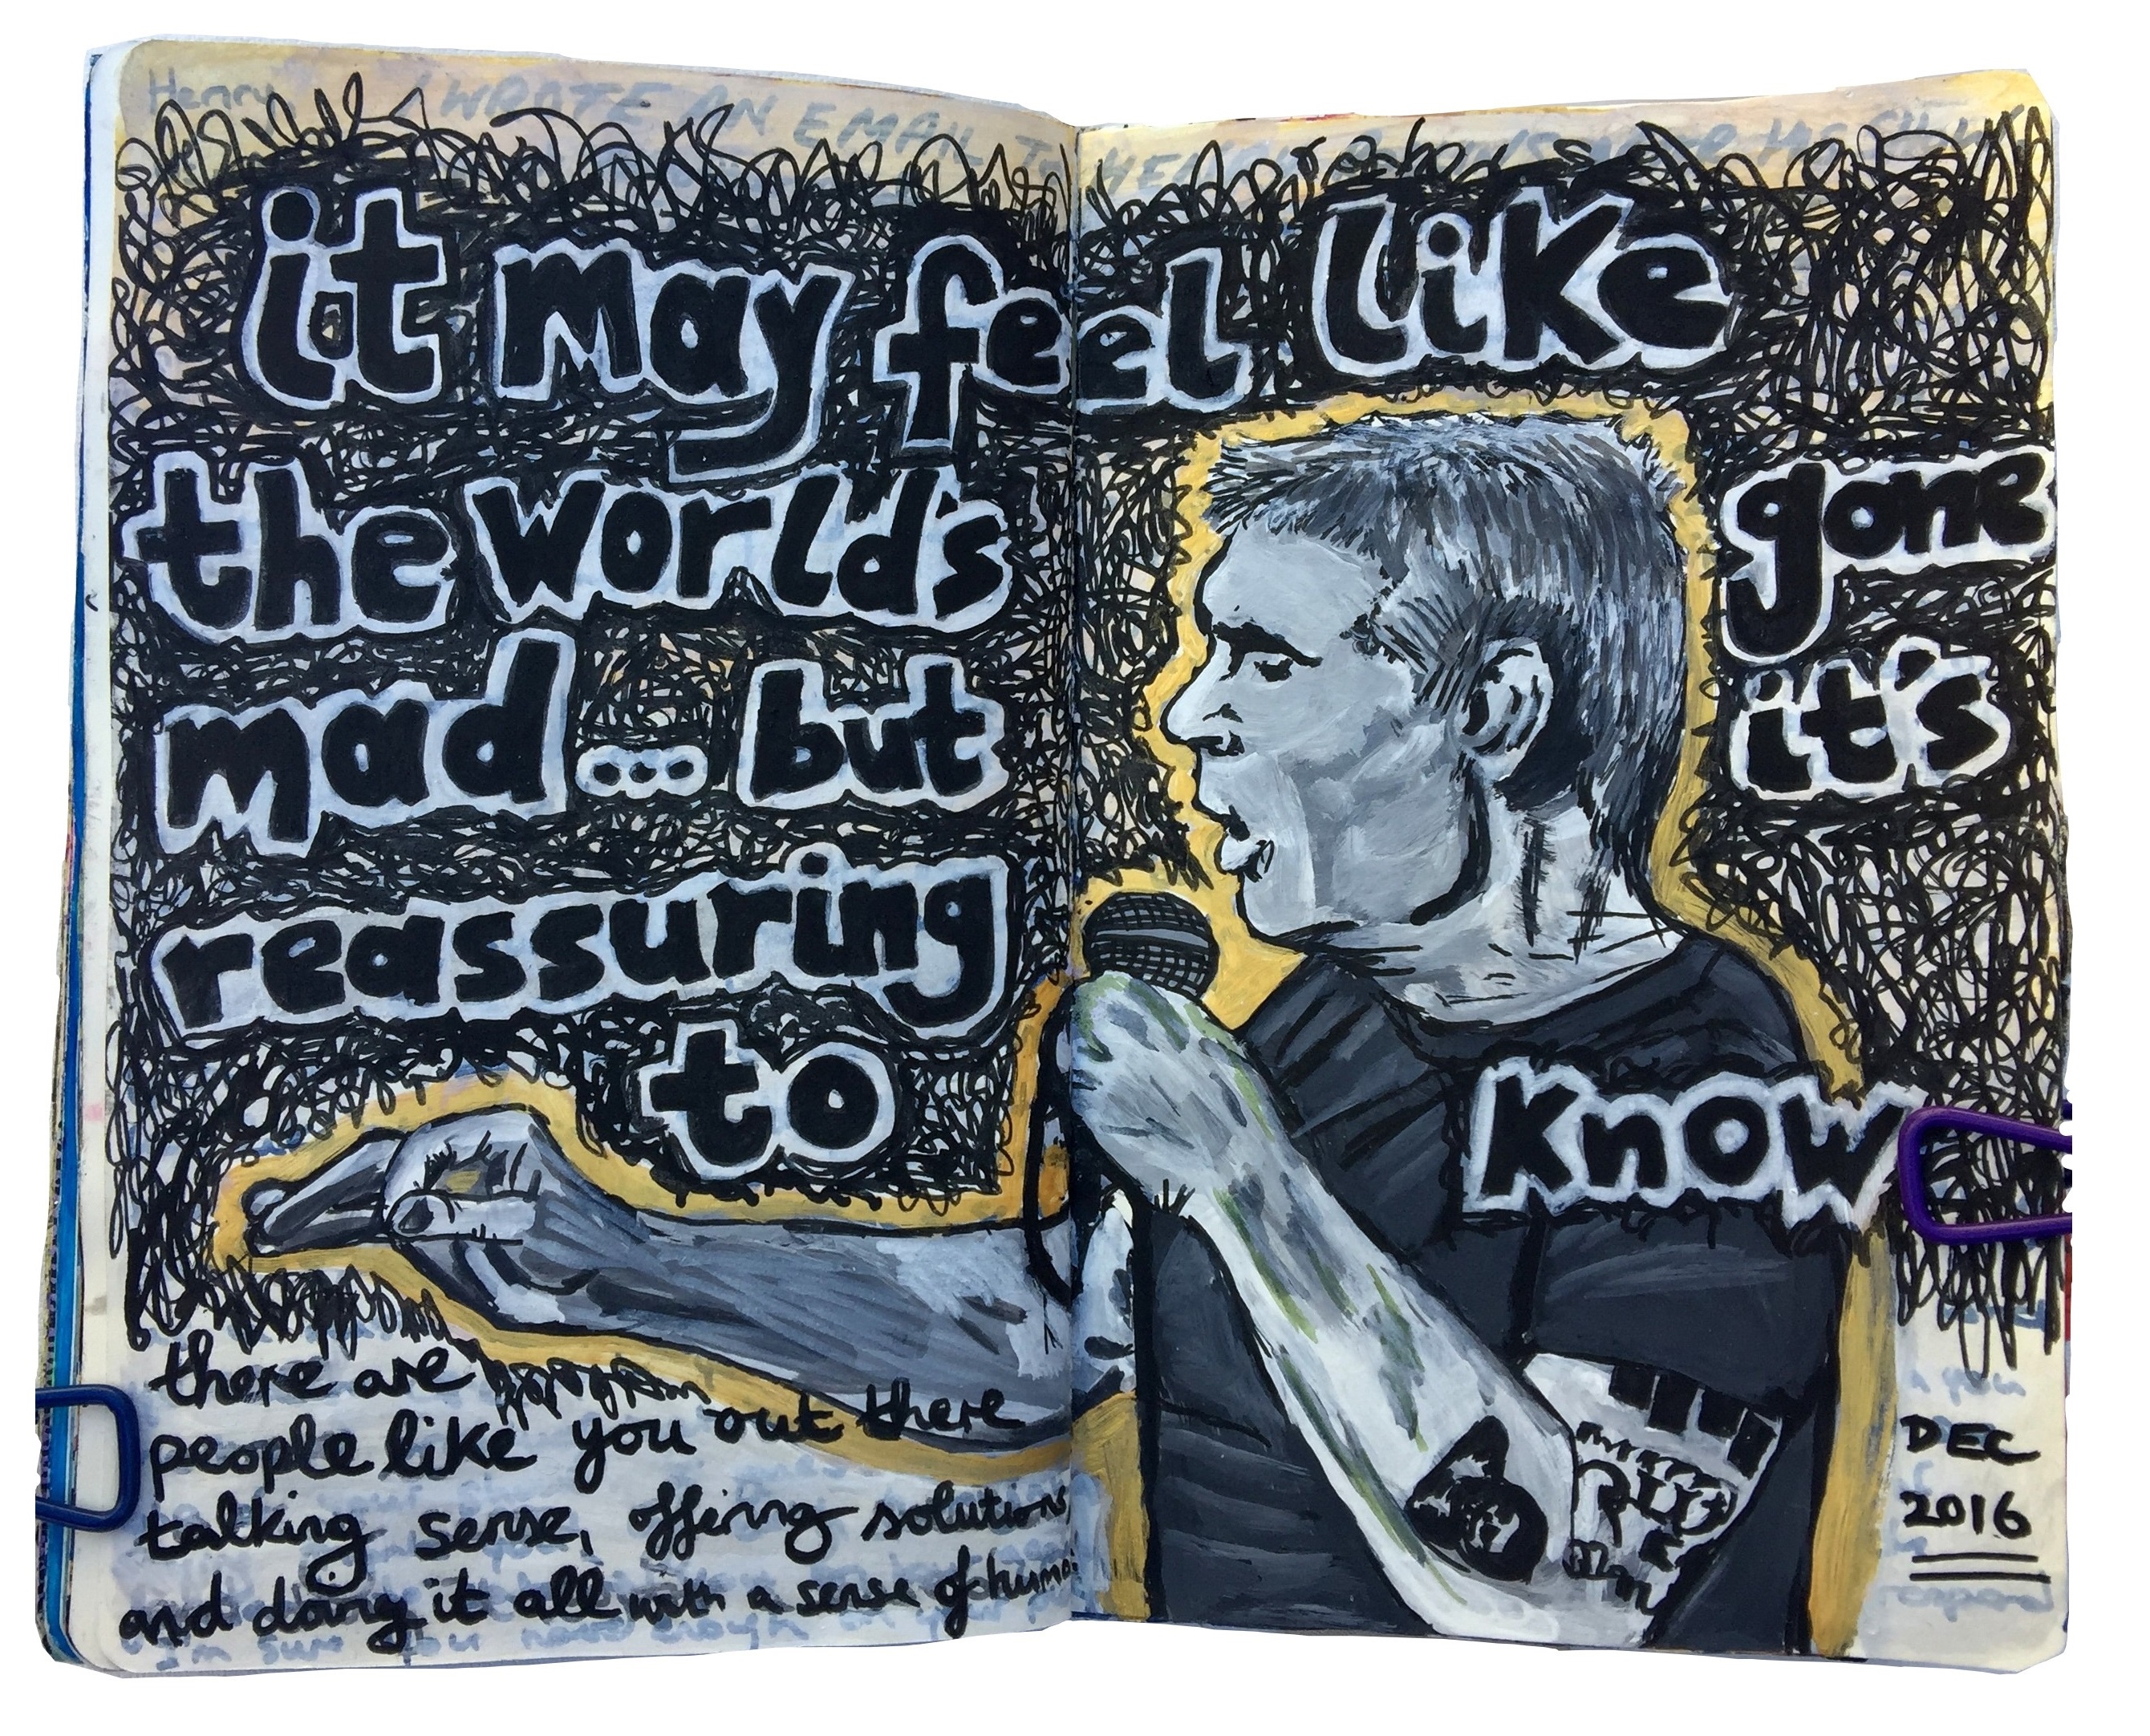 Henry I WROTE AN EMAIL TO HENRY
it may feel like
the world's gone
mad... but it's
reassuring
to know
there are
people like you out there
talking sense, offering solutions
and doing it all with a sense of
I'm sure you
DEC
2016